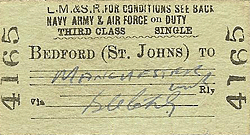 L.M.&S.R. FOR CONDITIONS SEE BACK
NAVY ARMY & AIR FORCE ON DUTY
THIRD CLASS SINGLE
4165
BEDFORD (ST. JOHNS) TO
Manchester
Rly
Via Bletchley
4165